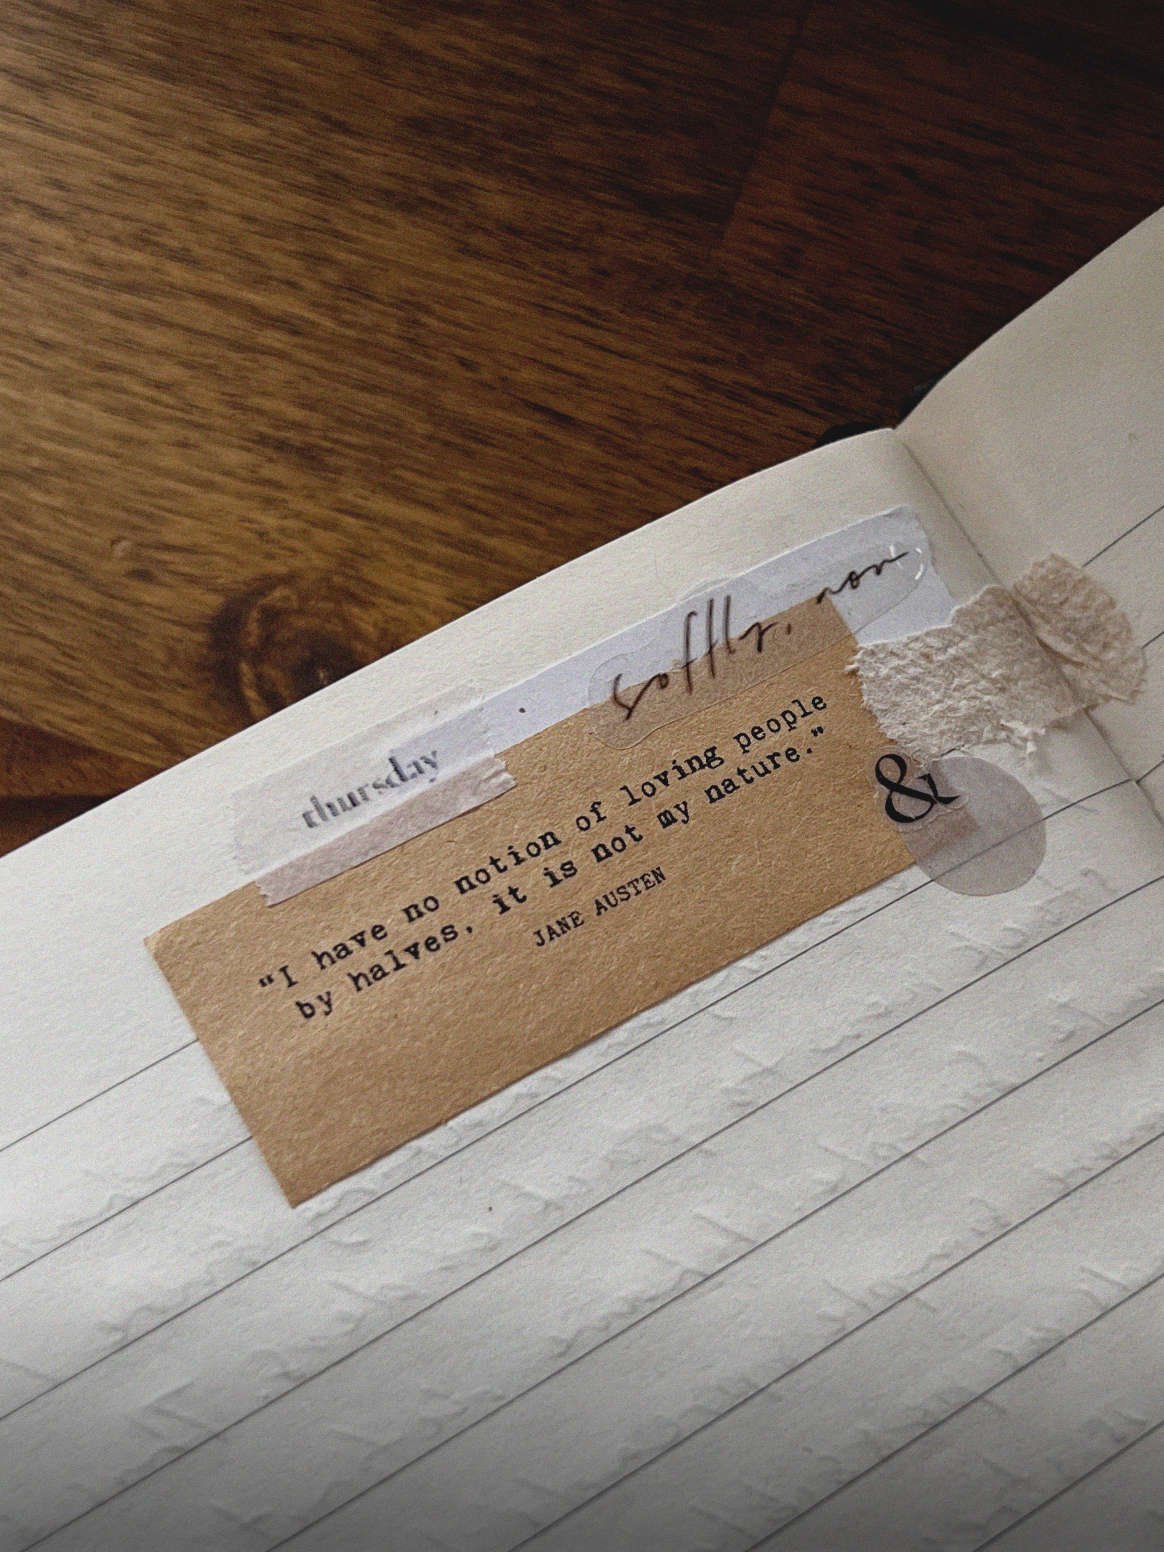 thursday
softly, now
"I have no notion of loving people
by halves, it is not my nature."
JANE AUSTEN
&